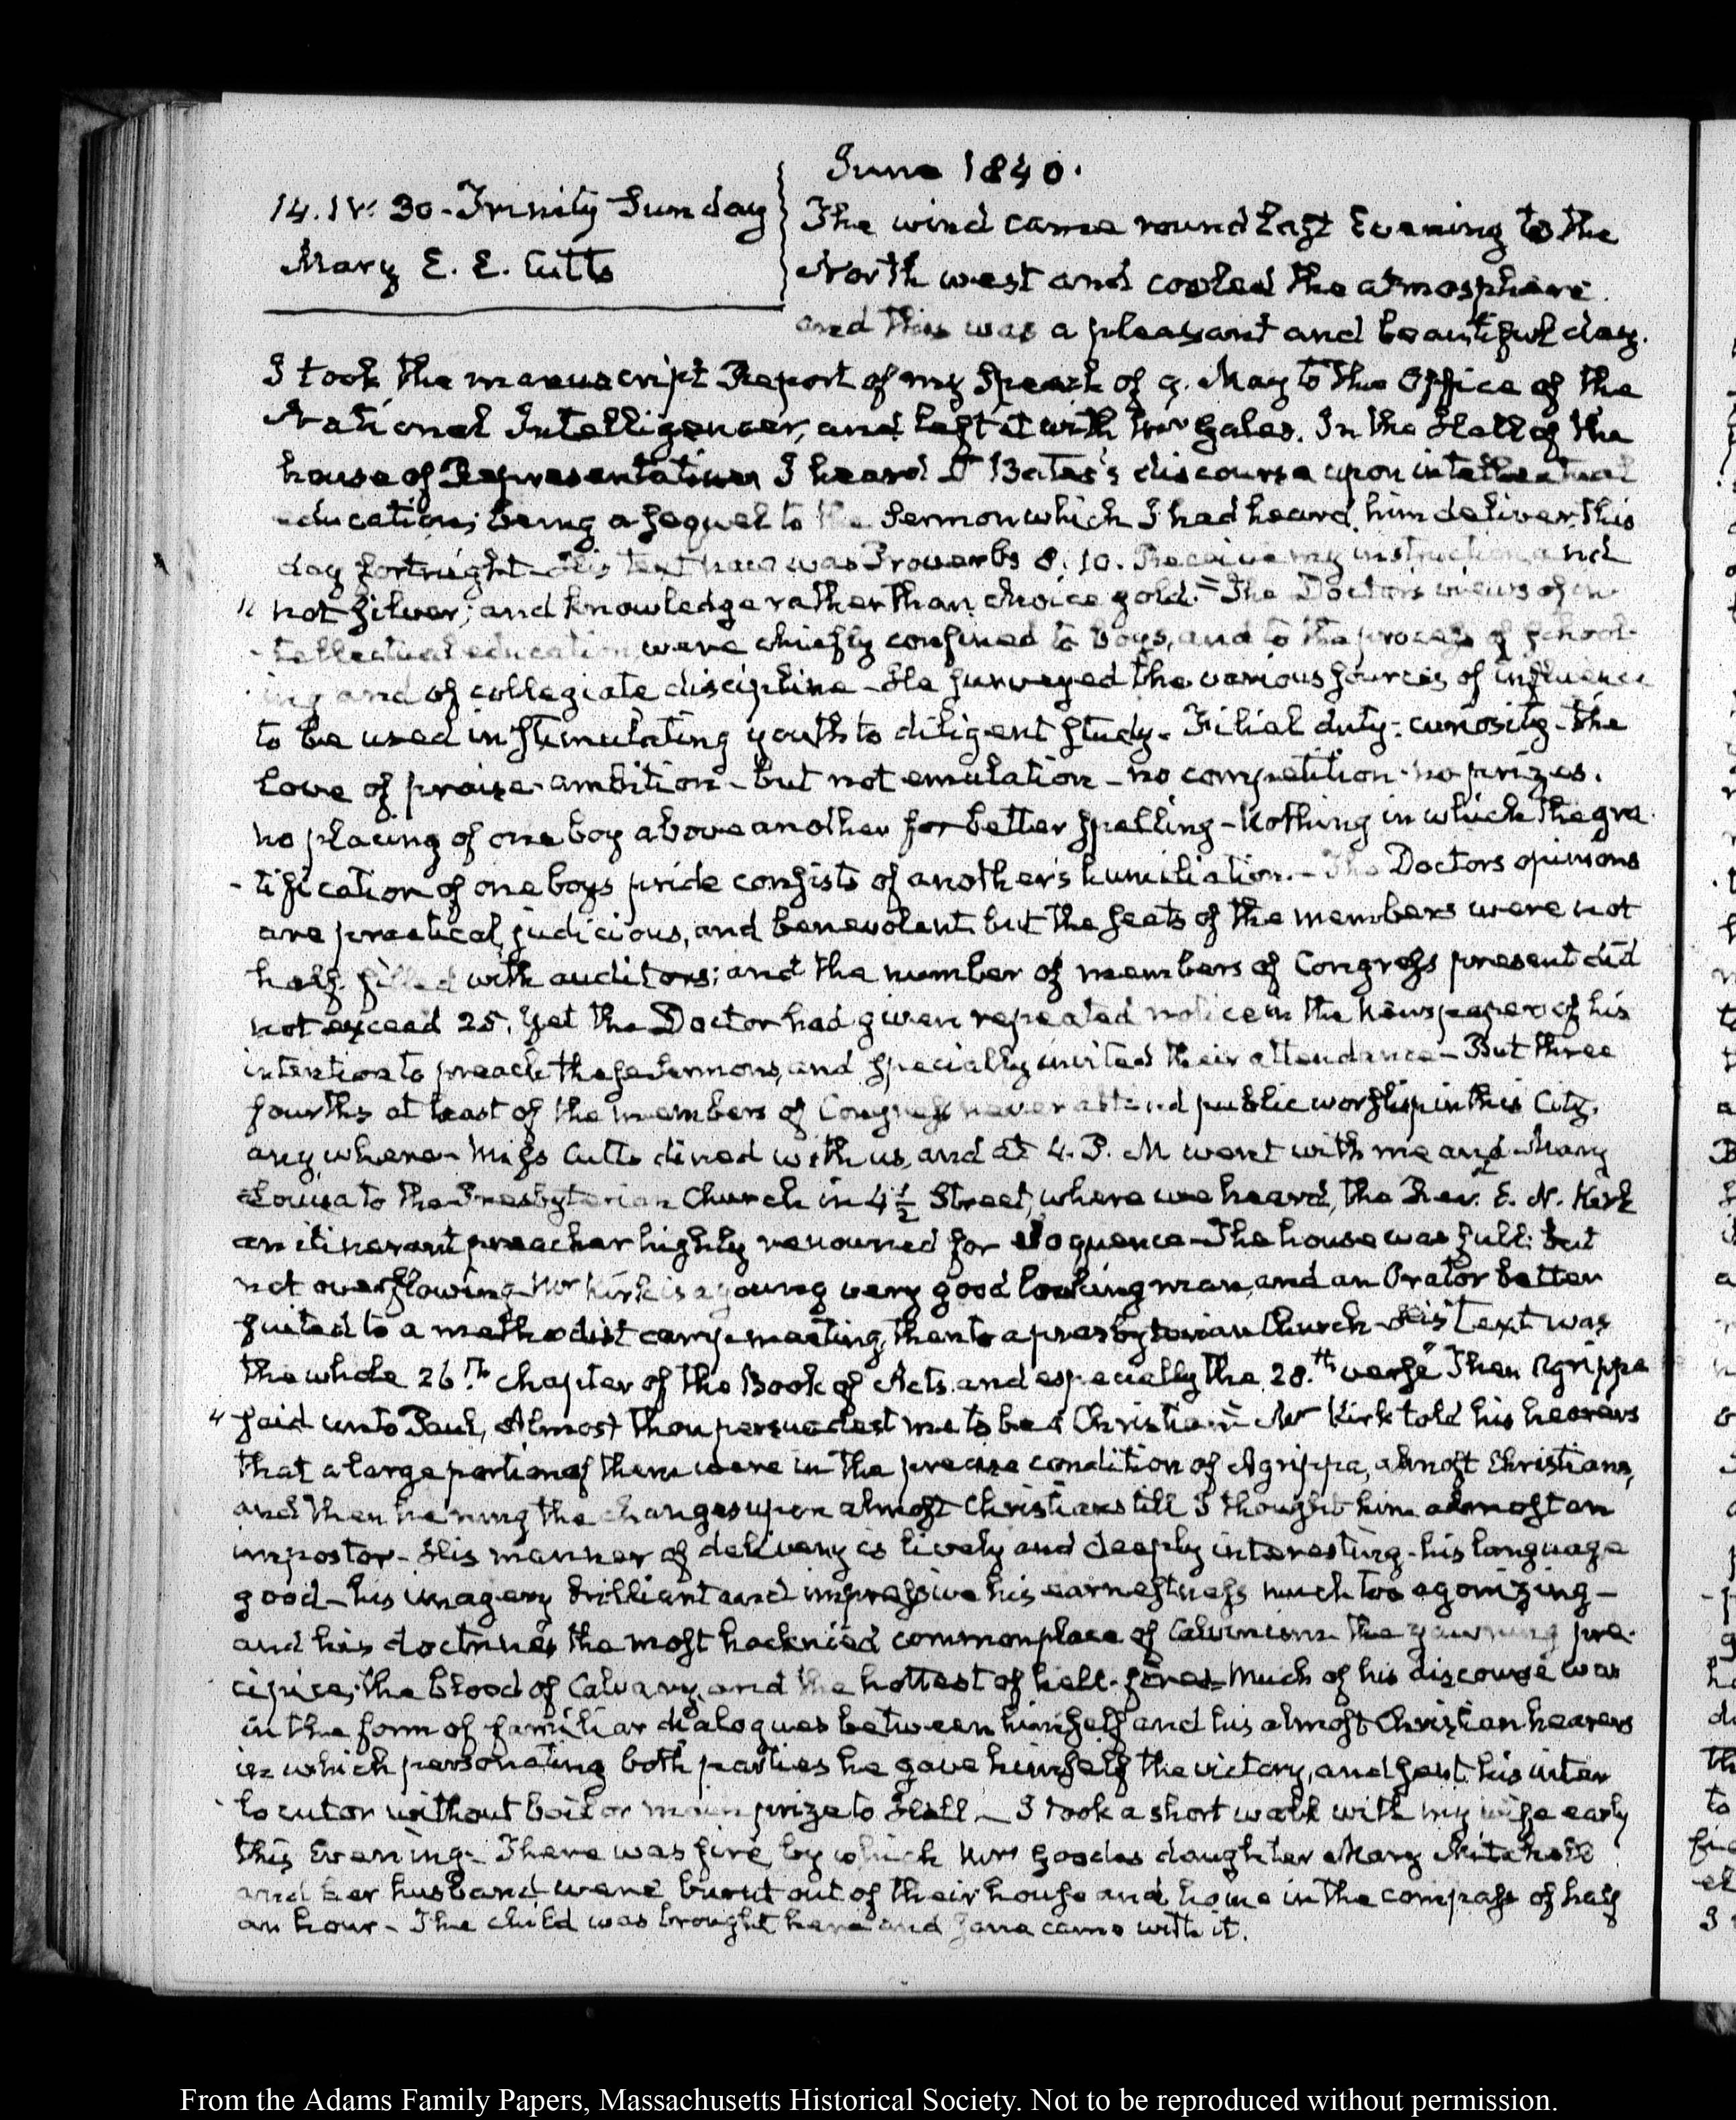 June 1840.
14. IV: 30. Trinity Sunday
Mary E. E. Cutts
The wind came round last Evening to the
North west and cooled the atmosphere.
and this was a pleasant and beautiful day.
I took the manuscript Report of my Speech of 9. May to the Office of the
National Intelligencer, and left it with Mr Gales. In the Hall of the
house of Representatives I heard Dr Bates's discourse upon intellectual
education; being a sequel to the Sermon which I had heard him deliver this
day fortnight. His text was Proverbs 8. 10. Receive my instruction and
" not silver; and knowledge rather than choice gold." The Doctor's views of in-
-tellectual education were chiefly confined to boys, and to the process of school-
ing and of collegiate discipline - He surveyed the various sources of influence
to be used in stimulating youth to diligent study - Filial duty - curiosity - the
love of praise - ambition - but not emulation - no competition - no prizes.
no placing of one boy above another for better spelling - Nothing in which the gra-
-tification of one boys pride consists of another's humiliation. - The Doctors opinions
are practical, judicious, and benevolent but the seats of the members were not
half filled with auditors; and the number of members of Congress present did
not exceed 25. Yet the Doctor had given repeated notice in the Newspapers of his
intention to preach these Sermons, and specially invited their attendance - But three
fourths at least of the members of Congress never attend public worship in this City,
any where - Miss Cutts dined with us, and at 4. P. M went with me and Mary
Louisa to the Presbyterian Church in 4½ Street, where we heard, the Rev. E. N. Kirk
an itinerant preacher highly renowned for eloquence - The house was full: but
not overflowing - Mr Kirk is a young very good looking man, and an Orator better
suited to a methodist camp-meeting, than to a presbyterian Church - His Text was
the whole 26.th chapter of the Book of Acts, and especially the 28.th verse "Then Agrippa
" said unto Paul, Almost thou persuadest me to be a Christian" - Mr Kirk told his hearers
that a large portion of them were in the precise condition of Agrippa, almost Christians,
and then he rung the changes upon almost Christians till I thought him almost an
impostor - His manner of delivery is lively and deeply interesting - his language
good - his imagery brilliant and impressive his earnestness much too agonizing -
and his doctrines the most hacknied commonplace of Calvinism - The yawning pre-
cipice, the blood of Calvary, and the hottest of hell-fires - Much of his discourse was
in the form of familiar dialogues between himself and his almost Christian hearers
in which personating both parties he gave himself the victory, and sent his inter
-locutor without bail or main prize to Hell. - I took a short walk with my wife early
this Evening - There was fire, by which Mrs Goods daughter Mary Mitchell
and her husband were burnt out of their house and home in the compass of half
an hour - The child was brought here and Jane came with it.
From the Adams Family Papers, Massachusetts Historical Society. Not to be reproduced without permission.